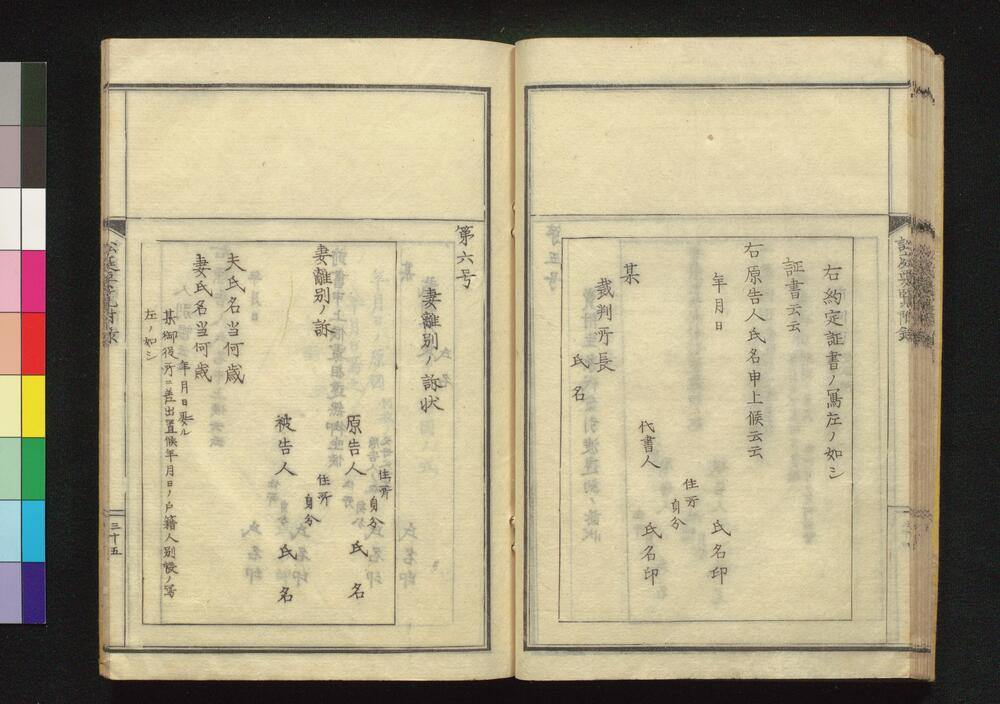 右約定証書ノ寫左ノ如シ
証書云云
右原告人氏名申上候云云
年月日
住所
身分
氏名印
代書人
氏名印
某
裁判所長
氏名
第六号
妻離別ノ訴状
住所
身分
原告人 氏名
妻離別ノ訴
住所
身分
被告人 氏名
夫氏名当何歳
妻氏名当何歳
年月日娶ル
某御役所ニ差出置候年月日ノ戸籍人別帳ノ寫
左ノ如シ
三十五